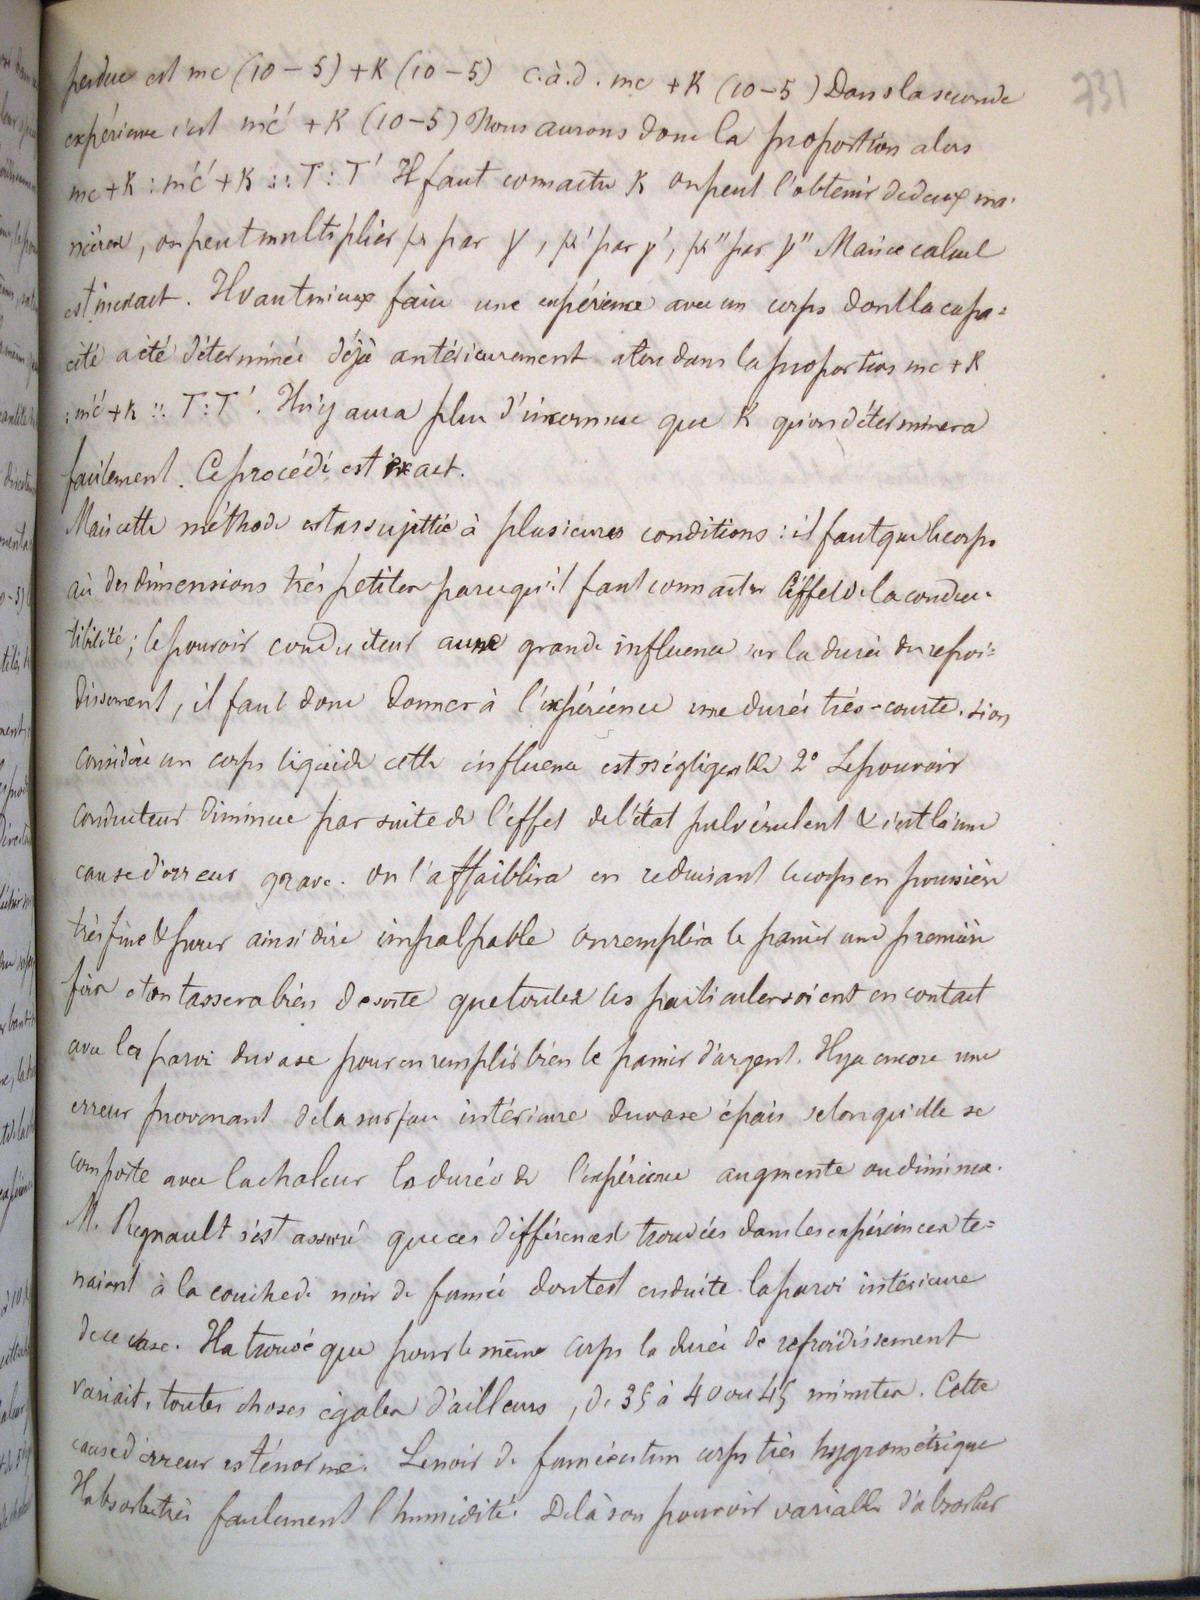 731
perdue est mc (10-5) + K (10-5) c.à.d. mc + K (10-5) Dans la seconde
expérience c'est m'c' + K (10-5) Nous aurons donc la proportion alors
mc + K : m'c' + K :: T : T' Il faut connaitre K on peut l'obtenir de deux ma-
nières, on peut multiplier μ par γ, μ' par γ', μ'' par γ'' Mais ce calcul
est inexact. Il vaut mieux faire une expérience avec un corps dont la capa=
cité a été déterminée déjà antérieurement alors dans la proportion mc + K
: m'c' + K :: T : T'. Il n'y aura plus d'inconnue que K qu'on déterminera
facilement. Ce procédé est exact.
Mais cette méthode est assujettie à plusieures conditions : il faut que le corps
ait des dimensions très petites parce qu'il faut connaitre l'effet de la conduc-
tibilité; le pouvoir conducteur a une grande influence sur la durée du refroi=
dissement, il faut donc donner à l'expérience une durée très-courte. si on
considère un corps liquide cette influence est négligeable 2° Le pouvoir
conducteur diminue par suite de l'effet de l'état pulvérulent & c'est là une
cause d'erreur grave. On l'affaiblira en reduisant le corps en poussière
très fine & pour ainsi dire impalpable on remplira le panier une première
fois et on tassera bien de sorte que toutes les particules soient en contact
avec les parois du vase pour en remplir bien le panier d'argent. Il y a encore une
erreur provenant de la surface intérieure du vase épais selon qu'elle se
comporte avec la chaleur la durée de l'expérience augmente ou diminue.
M. Regnault s'est assuré que ces différences trouvées dans les expériences te=
naient à la couche de noir de fumée dont est enduite la paroi intérieure
de ce vase. Il a trouvé que pour le même corps la durée de refroidissement
variait, toutes choses égales d'ailleurs, de 35 à 40 ou 45 minutes. Cette
cause d'erreur est énorme. Le noir de fumée est un corps très hygrométrique
Il absorbe très facilement l'humidité. De là son pouvoir variable d'absorber